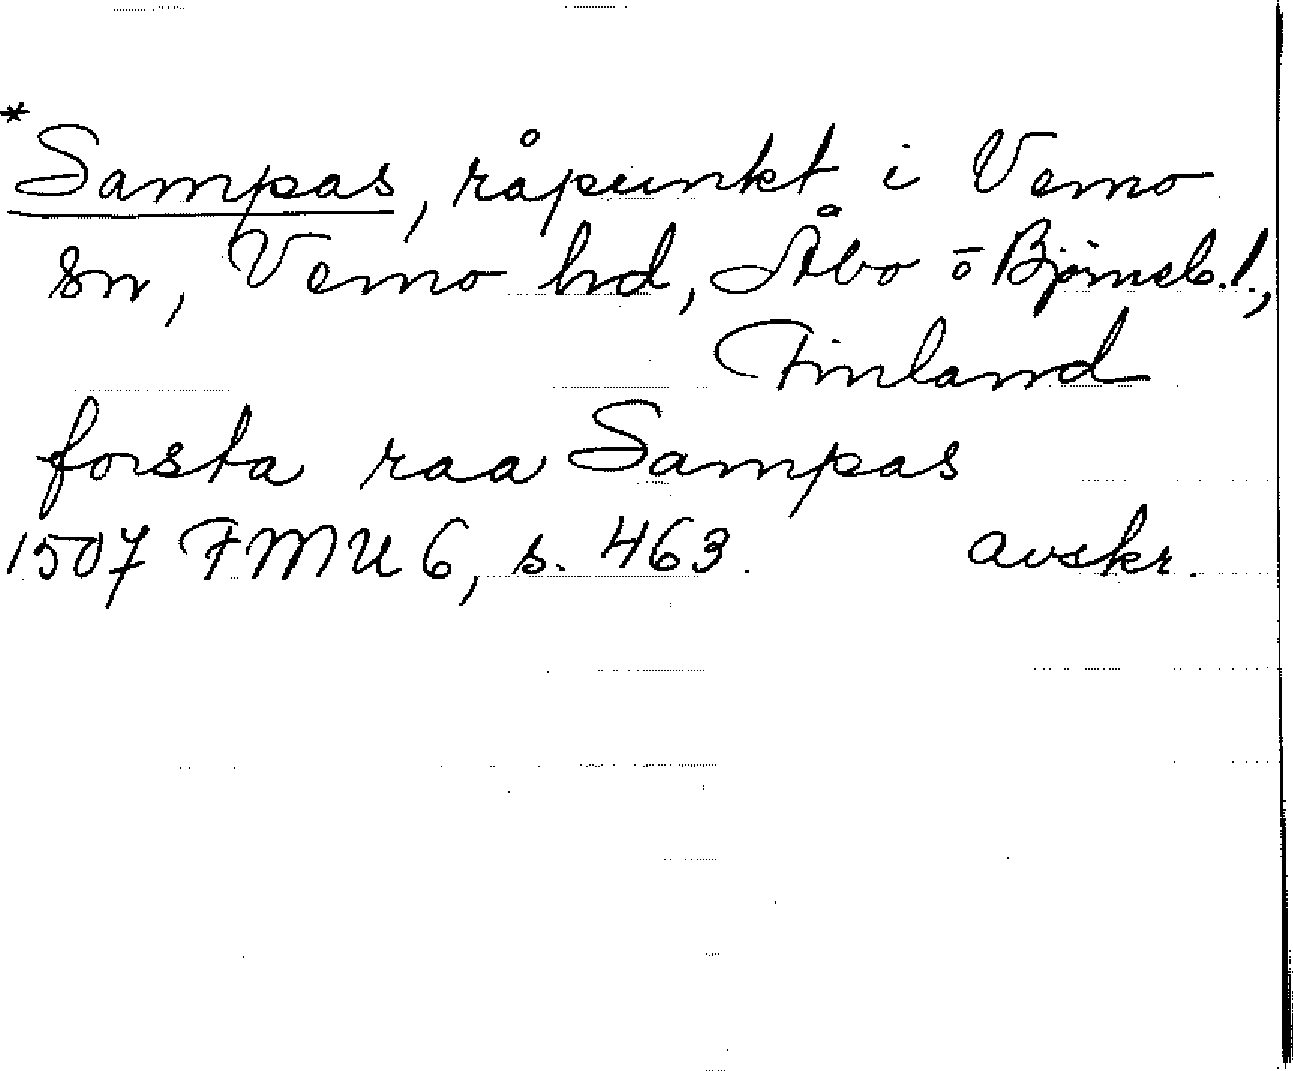 *Sampas, råpunkt i Vemo
sn, Vemo hd, Åbo o Björneb. l.,
Finland
forsta raa Sampas
1507 FMU 6, s. 463. avskr.